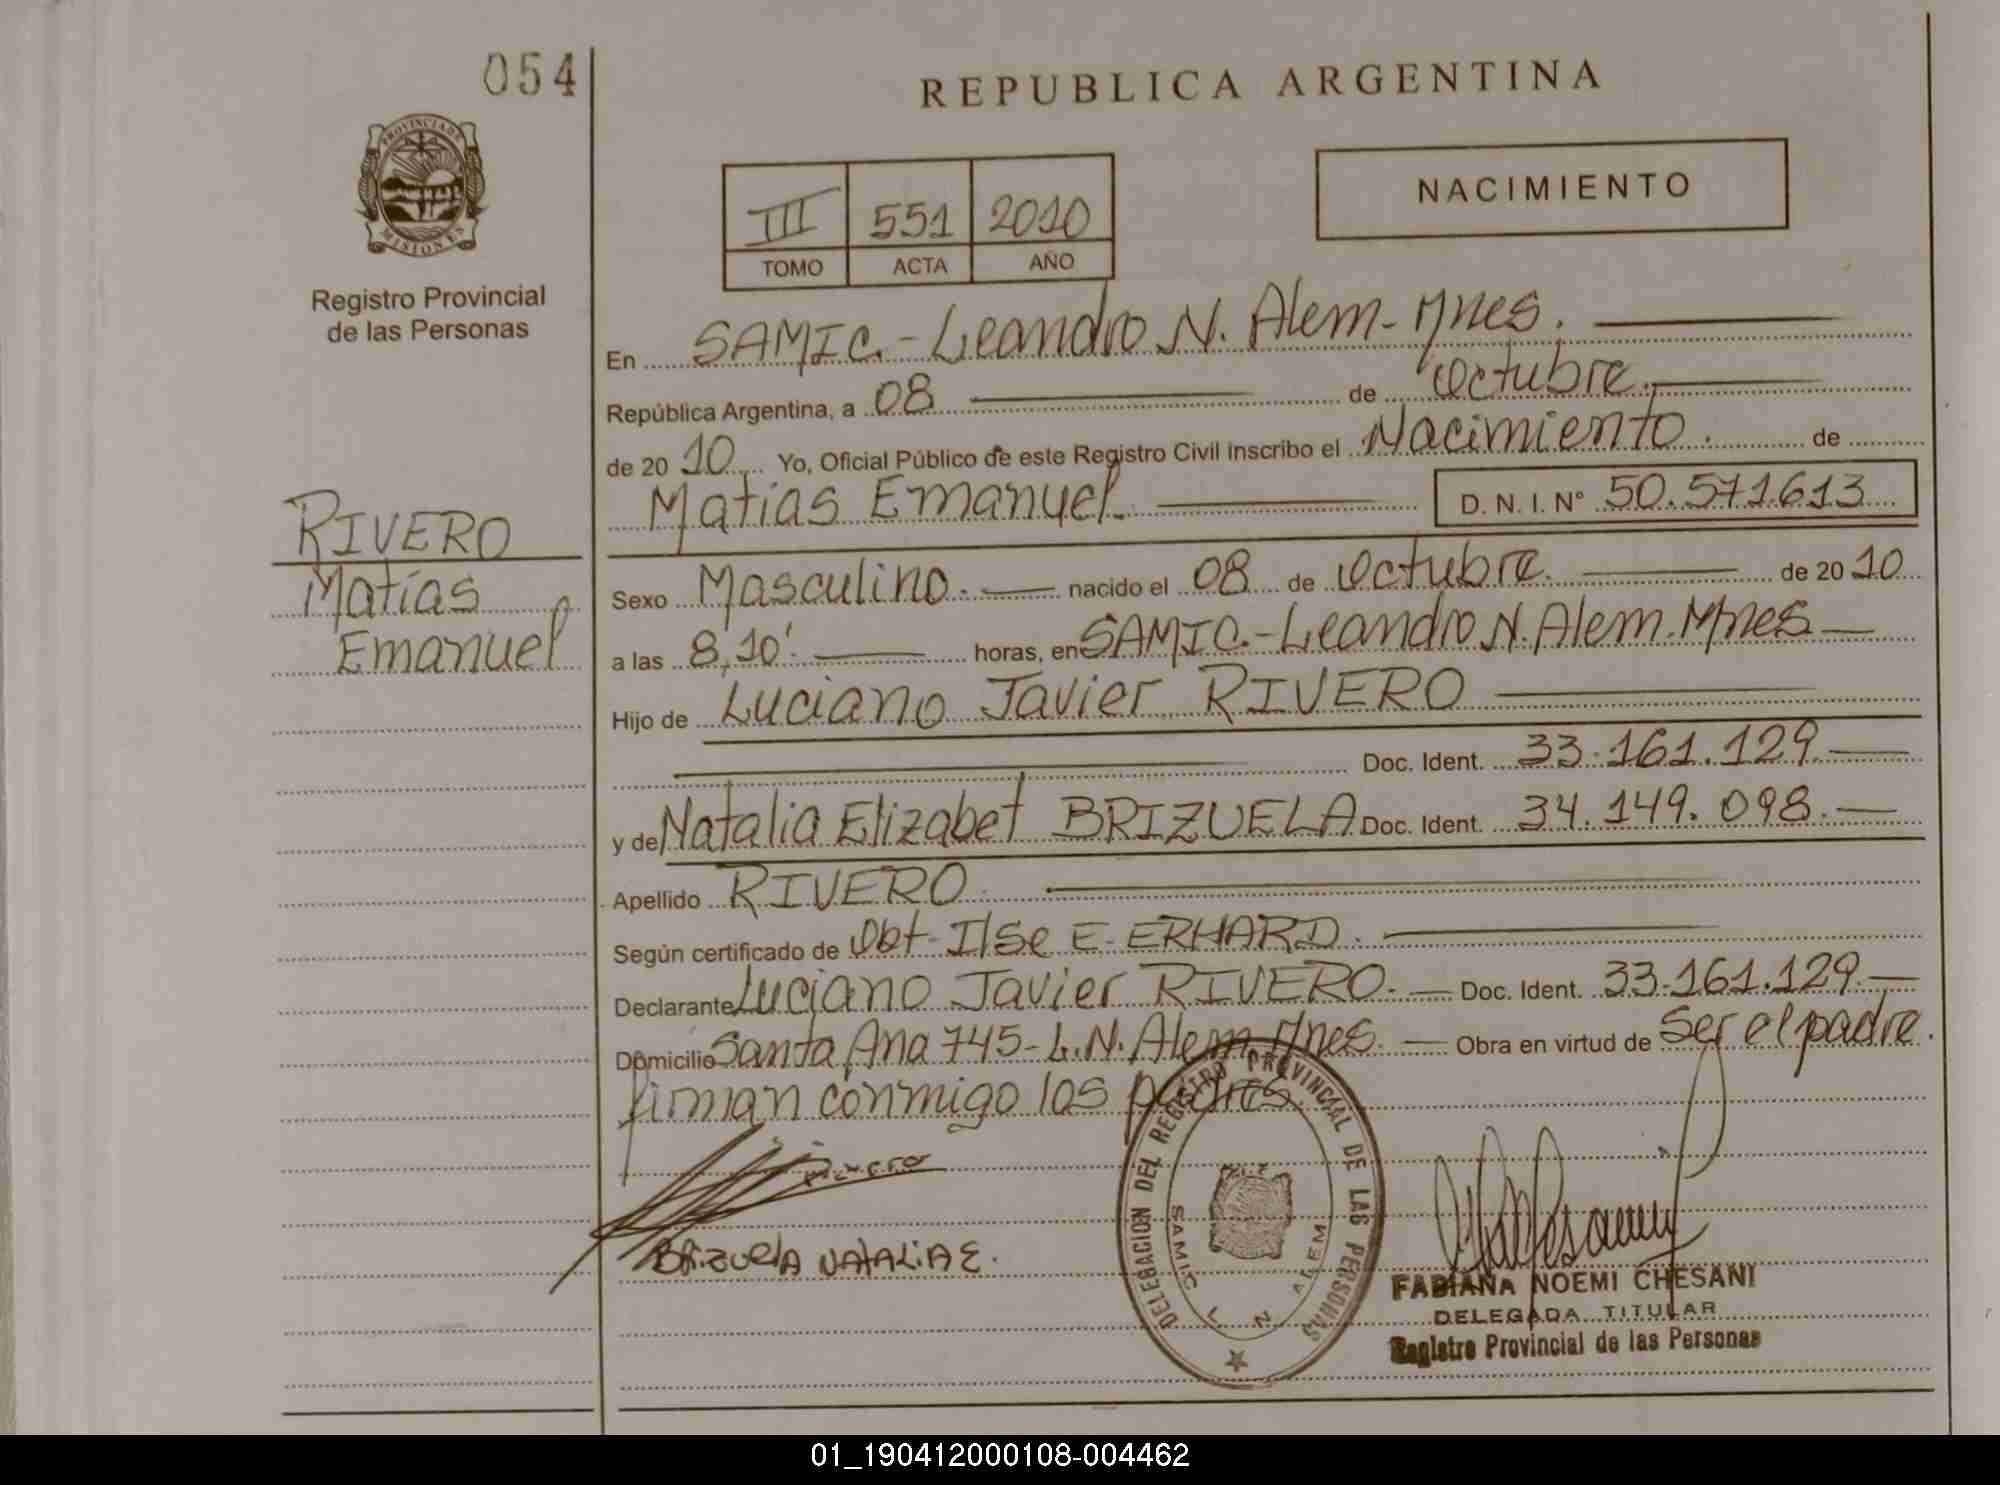 054
PROVINCIA DE
MISIONES
Registro Provincial
de las Personas
RIVERO
Matías
Emanuel
REPUBLICA ARGENTINA
III 551 2010
TOMO ACTA AÑO
NACIMIENTO
En SAMIC.-Leandro N. Alem-Mnes.
República Argentina, a 08 de Octubre.
de 2010 Yo, Oficial Público de este Registro Civil inscribo el Nacimiento. de
Matias Emanuel. D. N. I. Nº 50.571.613
Sexo Masculino. nacido el 08 de Octubre. de 2010
a las 8,10' horas, en SAMIC.-Leandro N. Alem. Mnes
Hijo de Luciano Javier RIVERO
Doc. Ident. 33.161.129.
y de Natalia Elizabet BRIZUELA Doc. Ident. 34.149.098.
Apellido RIVERO.
Según certificado de Obt. Ilse E. ERHARD.
Declarante Luciano Javier RIVERO. Doc. Ident. 33.161.129.
Domicilio Santa Ana 745-L.N. Alem Mnes. Obra en virtud de ser el padre.
firman conmigo los padres.
Rivero
BRIZUELA NATALIA E.
DELEGACION DEL REGISTRO PROVINCIAL DE LAS PERSONAS
SAMIC L N ALEM
FABIANA NOEMI CHESANI
DELEGADA TITULAR
Registro Provincial de las Personas
01_190412000108-004462